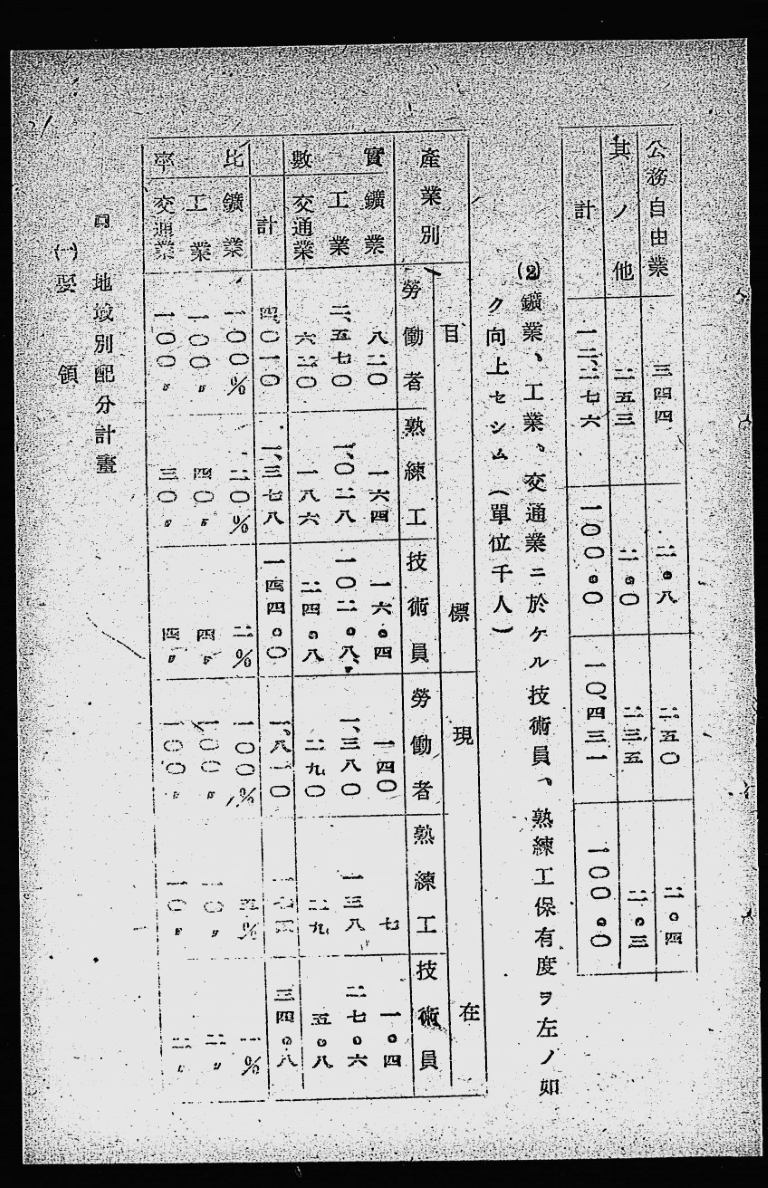 公務自由業 三四四 二。八 二五〇 二。四
其ノ他 二五三 二。〇 二三五 二。三
計 一二、二七六 一〇〇。〇 一〇、四三一 一〇〇。〇
(2)鑛業、工業、交通業ニ於ケル技術員、熟練工保有度ヲ左ノ如
ク向上セシム(單位千人)
目標 現在
產業別 勞働者 熟練工 技術員 勞働者 熟練工 技術員
實數
鑛業 八二〇 一六四 一六。四 一四〇 七 一。四
工業 二、五七〇 一、〇二八 一〇二。八 一、三八〇 一三八 二七。六
交通業 六二〇 一八六 二四。八 二九〇 二九 五。八
計 四、〇一〇 一、三七八 一四四。〇 一、八一〇 一七四 三四。八
比率
鑛業 一〇〇% 二〇% 二% 一〇〇% 五% 一%
工業 一〇〇〃 四〇〃 四〃 一〇〇〃 一〇〃 二〃
交通業 一〇〇〃 三〇〃 四〃 一〇〇〃 一〇〃 二〃
ロ 地域別配分計畫
(一)要領